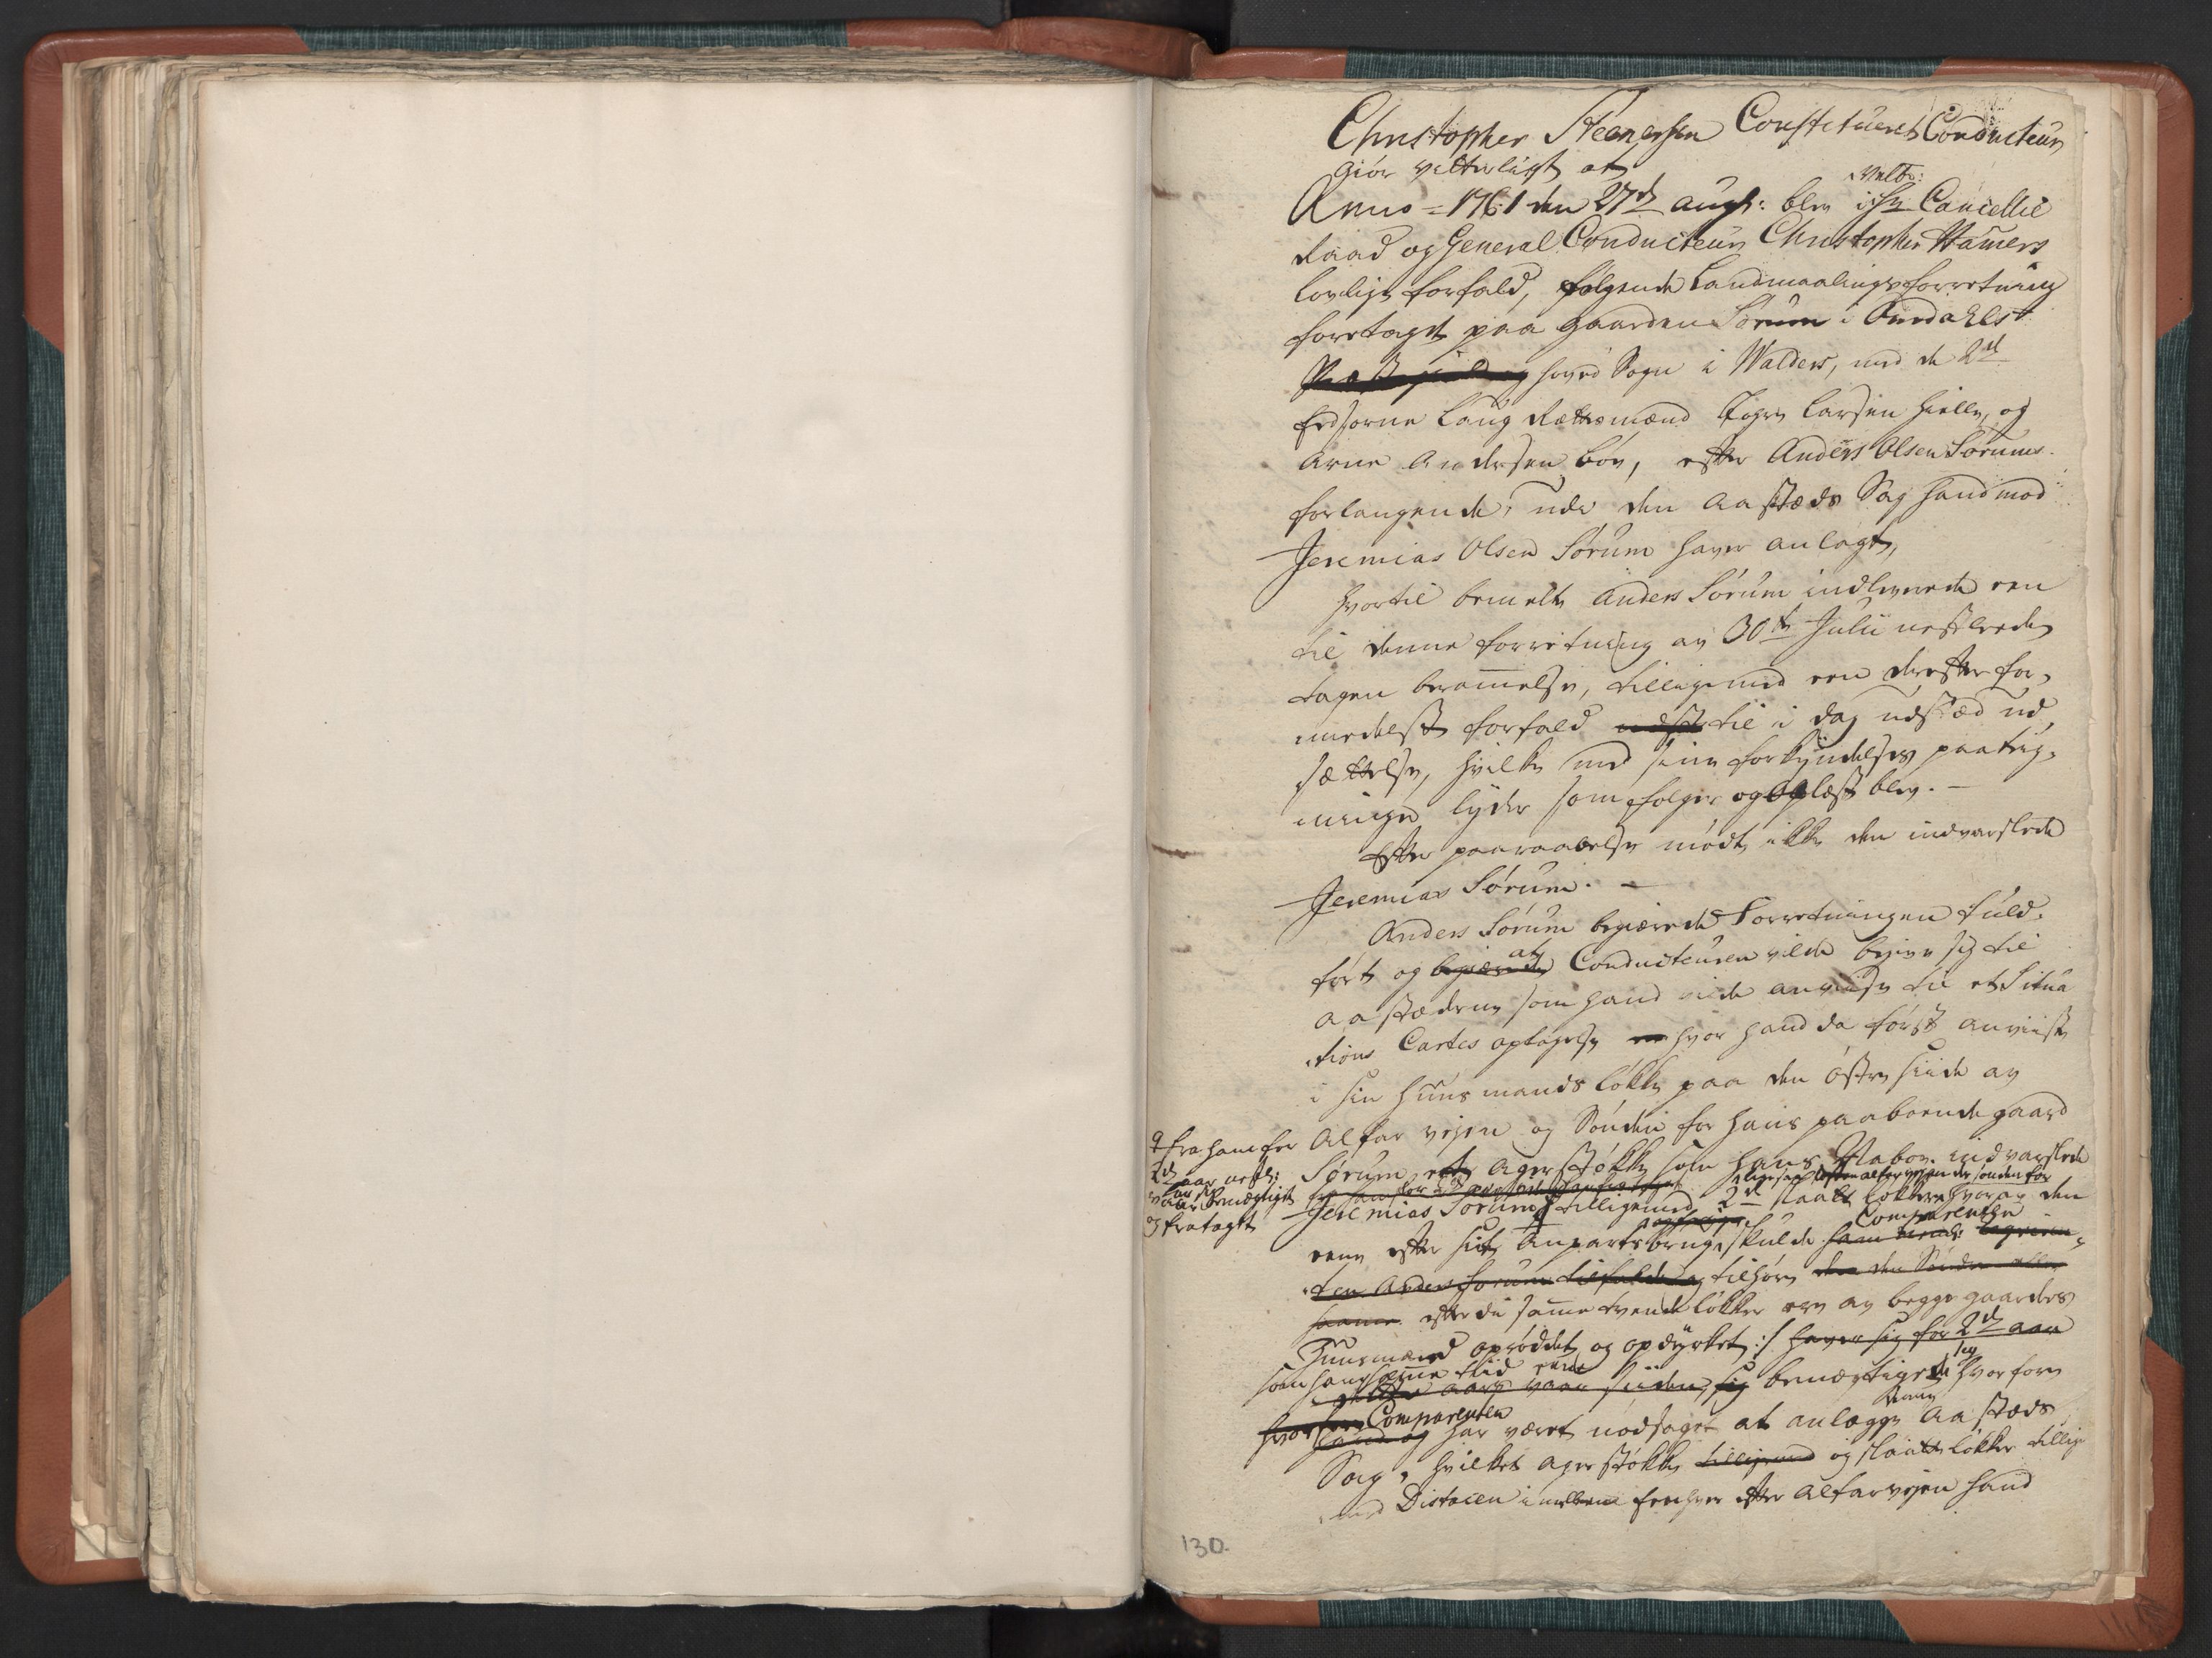 Christopher Steenersen Constitueret Conducteur
giør vitterligt at
Anno = 1761 den 27d augs: blev i Hr Velb: Cancellie
Raad og General Conducteur Christopher Hamers
lovlige forfald, følgende Landmaalings forretning
foretaget paa gaarden Sørum i Aurdahls
hoved Sogn i Walders, med de 2d
Edsorne Laug Rættesmænd Larsen Hielle, og
Arne Andersen Bøe, efter Anders Olsen Sørums
forlangende, udi den Aastæds Sag hand mod
Jeremias Olsen Sørum haver anlagt,
hvortil bemelte Anders Sørum indleverede een
til denne forretning av 30te Julii nestleeden
tagen berammelse, tilligemed een derefter for,
medelst forfald til i dag udstæd ud,
sættelse, hvilke med sine forkyndelses paateig,
ninger lyder som følger og oplæst blev. -
Efter paaraabelse mødte ikke den indvarslede
Jeremias Sørum. -
Anders Sørum begiærede Forretningen fuld,
ført og at Conducteuren vilde begive sig til
aastæderne som hand vilde anvise til et Situa
tions Cartes optagelse hvor hand da først anviiste
i sin Huusmands løkke paa den østre siide av
Alfar vejen og Sønden for hans paaboende gaard
Sørum, et agerstøkke som hans Naboe indvarslede
q fra ham for
2d aar
var bemægtiget
og frataget
Jeremias Sørum tilligemed 2d slaatte løkker hvorav den
eene efter sit anparts brug skulde Comparenten
tilhøre
efterdi samme tvende løkker ere av begge gaardens
Huusmænd oprøddet og opdyrket :/
som hand samme tiid bemægtigede sig hvorfore
Comparenten har været nødsaget at anlægge denne Aastæds
Sag, hvilket agerstøkke og slaatte løkker tillige
med Distancen imellem efter Alfarvejen hand
130.